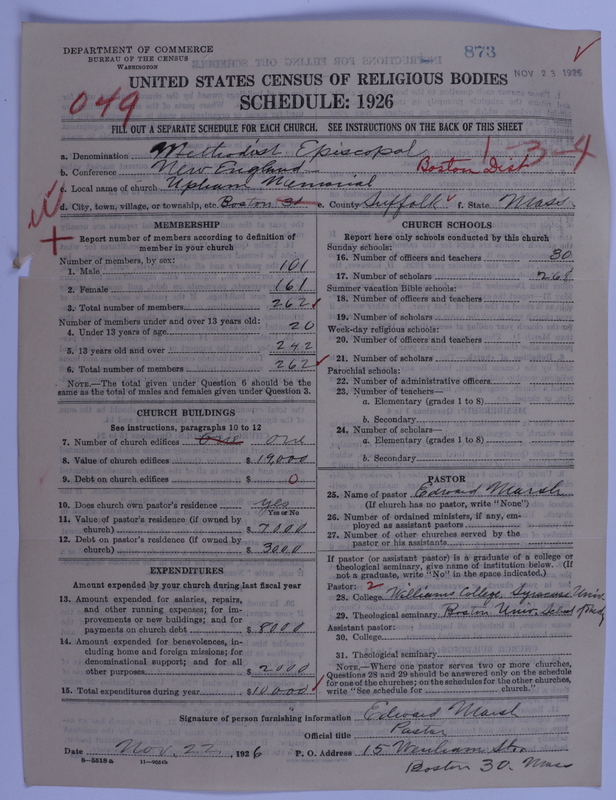 DEPARTMENT OF COMMERCE
BUREAU OF THE CENSUS
WASHINGTON
873
NOV 23 1926
UNITED STATES CENSUS OF RELIGIOUS BODIES
SCHEDULE: 1926
049
FILL OUT A SEPARATE SCHEDULE FOR EACH CHURCH. SEE INSTRUCTIONS ON THE BACK OF THIS SHEET
a. Denomination Methodist Episcopal
1-3-4
b. Conference New England
Boston Dist
c. Local name of church Upham Memorial
d. City, town, village, or township, etc. Boston e. County Suffolk f. State Mass.
MEMBERSHIP
Report number of members according to definition of
member in your church
Number of members, by sex:
1. Male 101
2. Female 161
3. Total number of members 262
Number of members under and over 13 years old:
4. Under 13 years of age 20
5. 13 years old and over 242
6. Total number of members 262
NOTE.—The total given under Question 6 should be
same as the total of males and females given under Question 3.
CHURCH BUILDINGS
See instructions, paragraphs 10 to 12
7. Number of church edifices One one
8. Value of church edifices $ 19,000
9. Debt on church edifices $ 0
10. Does church own pastor's residence yes
Yes or No
11. Value of pastor's residence (if owned by
church) $ 7,000
12. Debt on pastor's residence (if owned by
church) $ 3000
EXPENDITURES
Amount expended by your church during last fiscal year
13. Amount expended for salaries, repairs,
and other running expenses; for im-
provements or new buildings; and for
payments on church debt $ 8000
14. Amount expended for benevolences, in-
cluding home and foreign missions; for
denominational support; and for all
other purposes $ 2000
15. Total expenditures during year $ 10,000
CHURCH SCHOOLS
Report here only schools conducted by this church
Sunday schools:
16. Number of officers and teachers 30
17. Number of scholars 268
Summer vacation Bible schools:
18. Number of officers and teachers
19. Number of scholars
Week-day religious schools:
20. Number of officers and teachers
21. Number of scholars
Parochial schools:
22. Number of administrative officers
23. Number of teachers—
a. Elementary (grades 1 to 8)
b. Secondary
24. Number of scholars—
a. Elementary (grades 1 to 8)
b. Secondary
PASTOR
25. Name of pastor Edward Marsh
(If church has no pastor, write "None")
26. Number of ordained ministers, if any, em-
ployed as assistant pastors
27. Number of other churches served by the
pastor or his assistants
If pastor (or assistant pastor) is a graduate of a college or
theological seminary, give name of institution below. (If
not a graduate, write "No" in the space indicated.)
Pastor: 2
28. College Williams College, Syracuse Univ.
29. Theological seminary Boston Univ. School of
Assistant pastor:
30. College
31. Theological seminary
NOTE.—Where one pastor serves two or more churches,
Questions 28 and 29 should be answered only on the schedule
for one of the churches; on the schedules for the other churches,
write "See schedule for church."
Signature of person furnishing information Edward Marsh
Official title Pastor
Date Nov. 22, 1926 P. O. Address 15
8-5518a 11-9051b
Boston 30. Mass